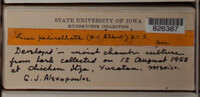 STATE UNIVERSITY OF IOWA
MYXOMYCETE COLLECTION
826387
Licea pedicellata (H.C. Gilbert) H.C. G.
Developed in moist chamber culture
from bark collected on 12 August 1958
at Chichen Itza, Yucatan, Mexico.
C. J. Alexopoulos